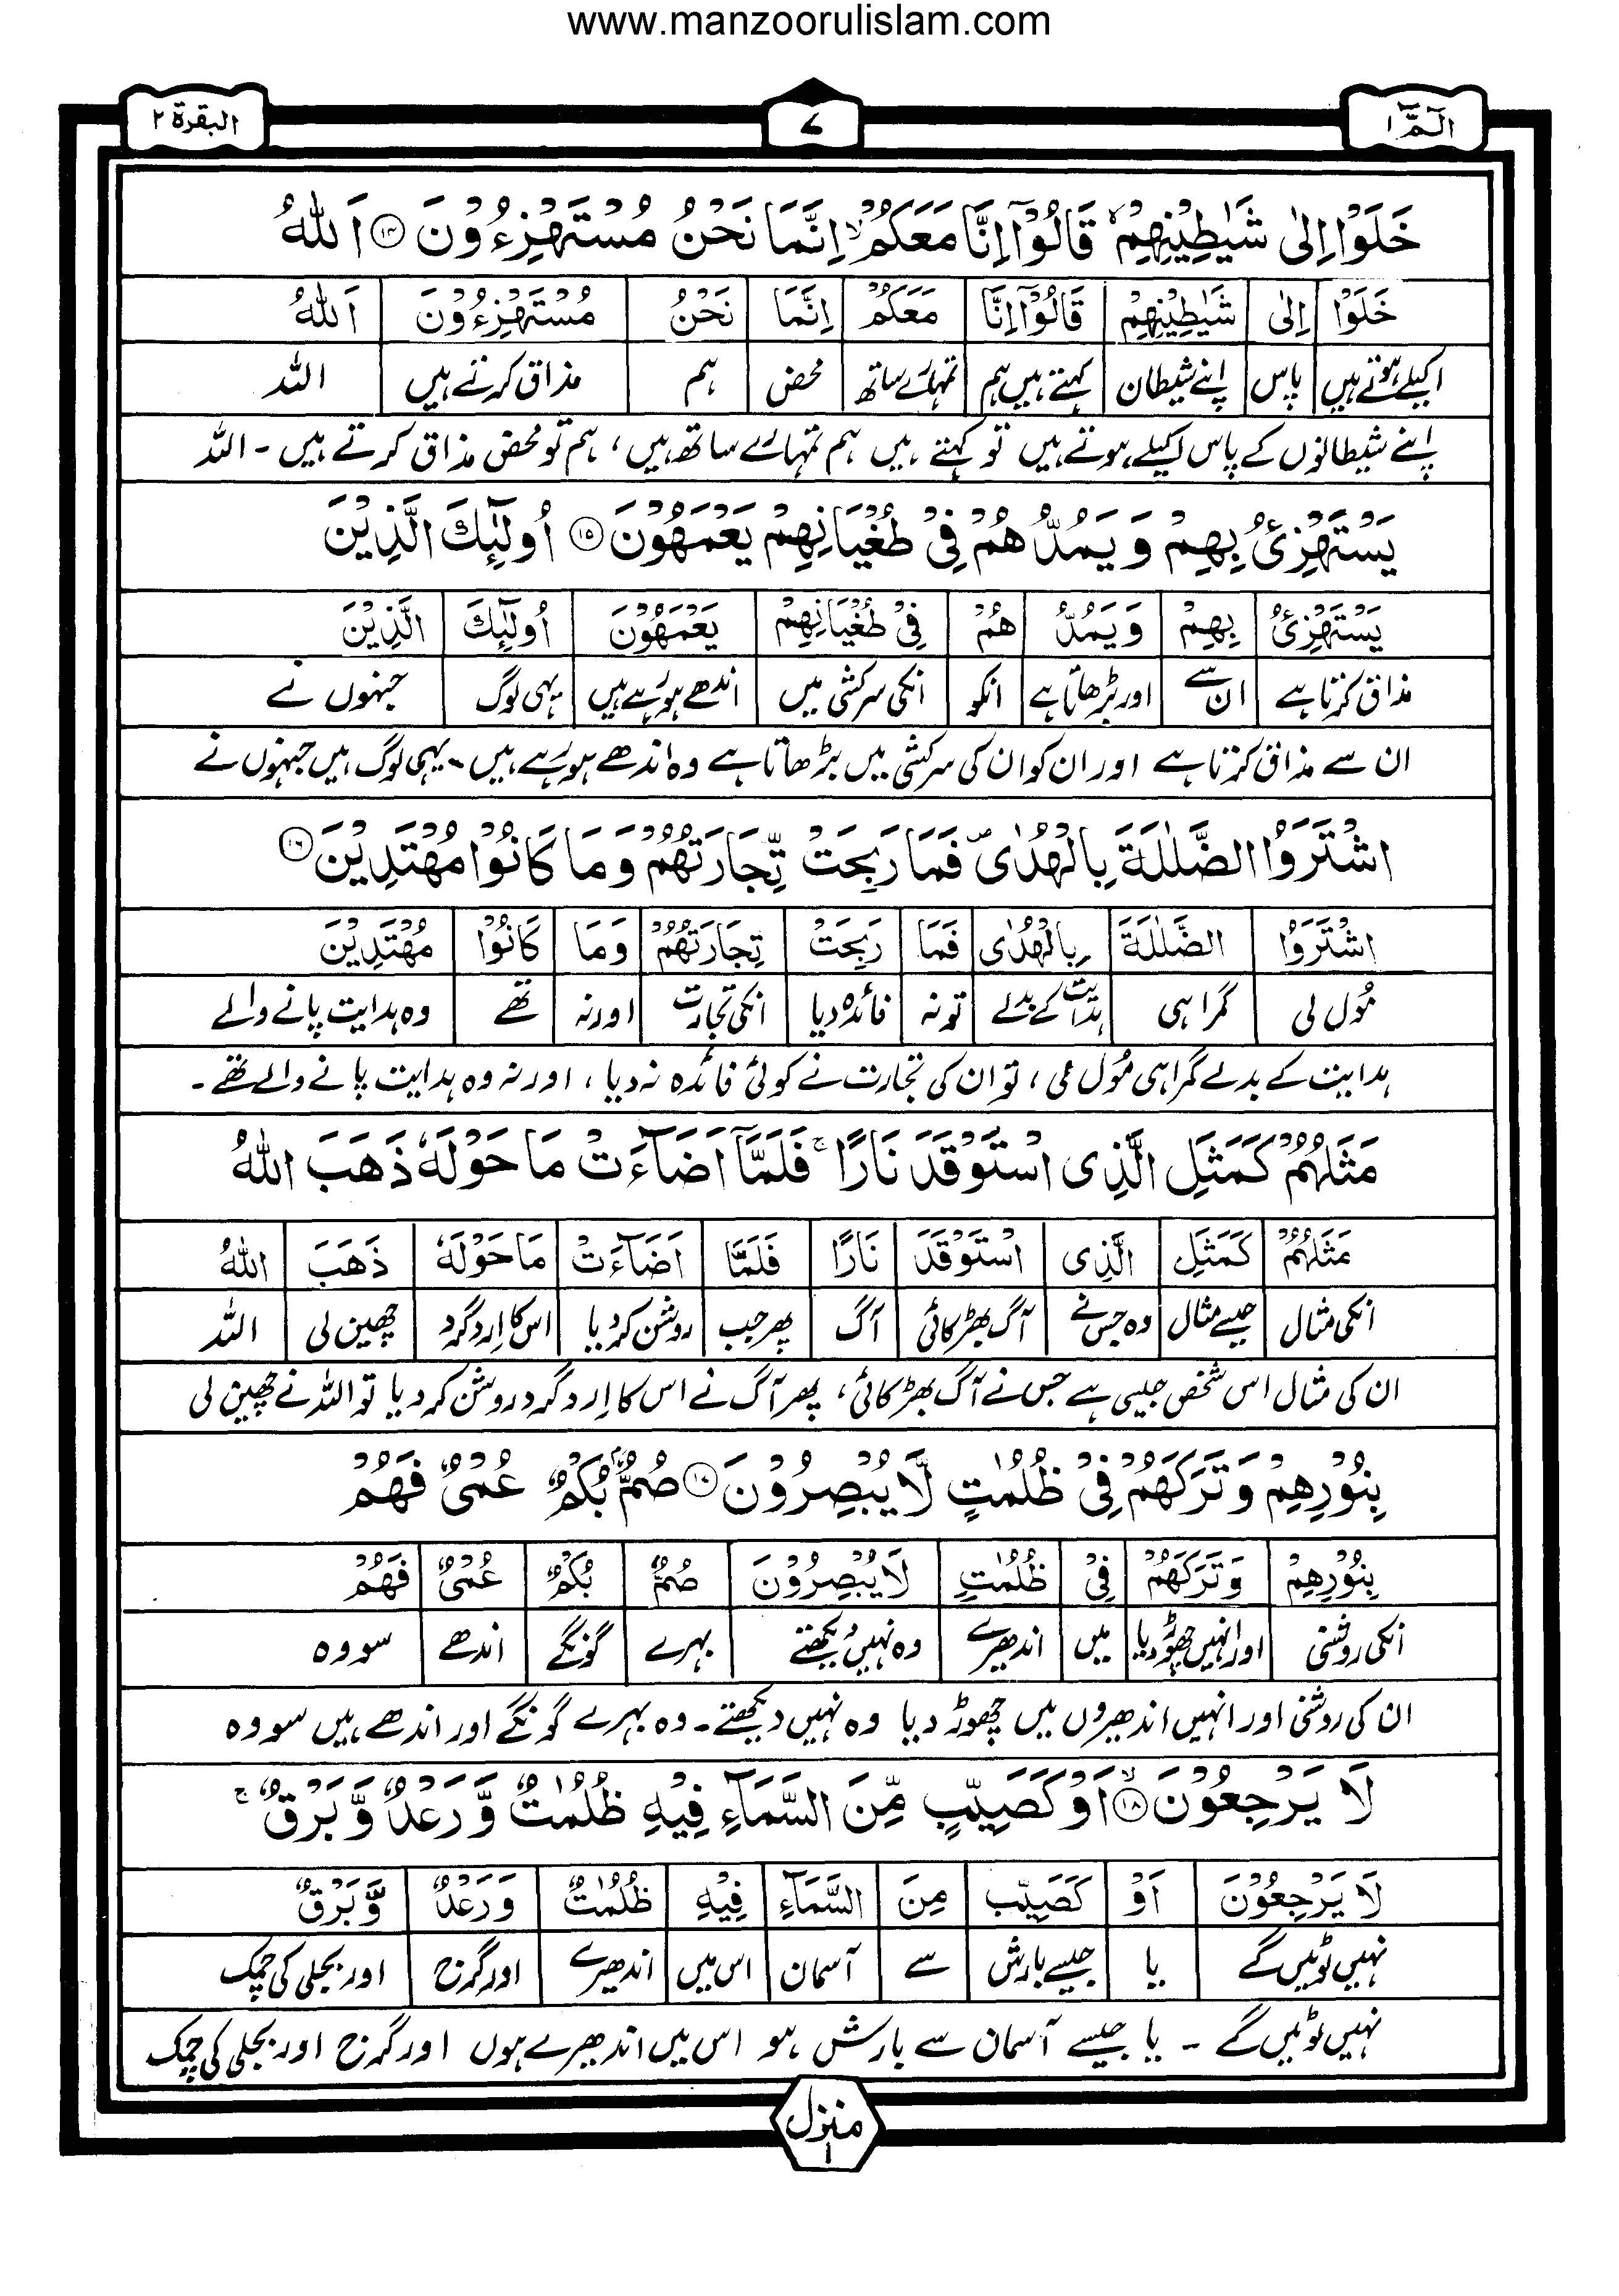 www.manzoorulislam.com
الٓمّٓ ١ ۷ البقرة ٢
خَلَوْا اِلٰى شَيٰطِيْنِهِمْ ۙ قَالُوْٓا اِنَّا مَعَكُمْ ۙ اِنَّمَا نَحْنُ مُسْتَهْزِءُوْنَ ۝۱۴ اَللّٰهُ
خَلَوْا اِلٰى شَيٰطِيْنِهِمْ قَالُوْٓا اِنَّا مَعَكُمْ اِنَّمَا نَحْنُ مُسْتَهْزِءُوْنَ اَللّٰهُ
اکیلے ہوتے ہیں پاس اپنے شیطان کہتے ہیں ہم تمہارے ساتھ محض ہم مذاق کرتے ہیں اللہ
اپنے شیطانوں کے پاس اکیلے ہوتے ہیں تو کہتے ہیں ہم تمہارے ساتھ ہیں، ہم تو محض مذاق کرتے ہیں ۔ اللہ
يَسْتَهْزِئُ بِهِمْ وَ يَمُدُّ هُمْ فِيْ طُغْيَانِهِمْ يَعْمَهُوْنَ ۝۱۵ اُولٰٓئِكَ الَّذِيْنَ
يَسْتَهْزِئُ بِهِمْ وَ يَمُدُّ هُمْ فِيْ طُغْيَانِهِمْ يَعْمَهُوْنَ اُولٰٓئِكَ الَّذِيْنَ
مذاق کرتا ہے ان سے اور بڑھاتا ہے انکو انکی سرکشی میں اندھے ہو رہے ہیں یہی لوگ جنہوں نے
ان سے مذاق کرتا ہے اور ان کو ان کی سرکشی میں بڑھاتا ہے وہ اندھے ہو رہے ہیں ۔ یہی لوگ ہیں جنہوں نے
اشْتَرَوُا الضَّلٰلَةَ بِالْهُدٰى ۪ فَمَا رَبِحَتْ تِّجَارَتُهُمْ وَمَا كَانُوْا مُهْتَدِيْنَ ۝۱۶
اشْتَرَوُا الضَّلٰلَةَ بِالْهُدٰى فَمَا رَبِحَتْ تِجَارَتُهُمْ وَمَا كَانُوْا مُهْتَدِيْنَ
مُول لی گمراہی ہدایت کے بدلے تو نہ فائدہ دیا انکی تجارت اور نہ تھے وہ ہدایت پانے والے
ہدایت کے بدلے گمراہی مُول لی، تو ان کی تجارت نے کوئی فائدہ نہ دیا، اور نہ وہ ہدایت پانے والے تھے ۔
مَثَلُهُمْ كَمَثَلِ الَّذِى اسْتَوْقَدَ نَارًا ۚ فَلَمَّآ اَضَآءَتْ مَا حَوْلَهٗ ذَهَبَ اللّٰهُ
مَثَلُهُمْ كَمَثَلِ الَّذِى اسْتَوْقَدَ نَارًا فَلَمَّا اَضَآءَتْ مَا حَوْلَهٗ ذَهَبَ اللّٰهُ
انکی مثال جیسے مثال وہ جس نے آگ بھڑکائی آگ پھر جب روشن کر دیا اس کا اِرد گرد چھین لی اللہ
ان کی مثال اس شخص جیسی ہے جس نے آگ بھڑکائی، پھر آگ نے اس کا اِرد گرد روشن کر دیا تو اللہ نے چھین لی
بِنُوْرِهِمْ وَ تَرَكَهُمْ فِيْ ظُلُمٰتٍ لَّا يُبْصِرُوْنَ ۝۱۷ صُمٌّۢ بُكْمٌ عُمْىٌ فَهُمْ
بِنُوْرِهِمْ وَ تَرَكَهُمْ فِيْ ظُلُمٰتٍ لَا يُبْصِرُوْنَ صُمٌّ بُكْمٌ عُمْىٌ فَهُمْ
انکی روشنی اور انہیں چھوڑ دیا میں اندھیرے وہ نہیں دیکھتے بہرے گونگے اندھے سو وہ
ان کی روشنی اور انہیں اندھیروں میں چھوڑ دیا وہ نہیں دیکھتے ۔ وہ بہرے گونگے اور اندھے ہیں سو وہ
لَا يَرْجِعُوْنَ ۝۱۸ ۙ اَوْ كَصَيِّبٍ مِّنَ السَّمَآءِ فِيْهِ ظُلُمٰتٌ وَّ رَعْدٌ وَّ بَرْقٌ ۚ
لَا يَرْجِعُوْنَ اَوْ كَصَيِّبٍ مِنَ السَّمَآءِ فِيْهِ ظُلُمٰتٌ وَ رَعْدٌ وَّ بَرْقٌ
نہیں لوٹیں گے یا جیسے بارش سے آسمان اس میں اندھیرے اور گرج اور بجلی کی چمک
نہیں لوٹیں گے ۔ یا جیسے آسمان سے بارش ہو اس میں اندھیرے ہوں اور گرج اور بجلی کی چمک
منزل
١